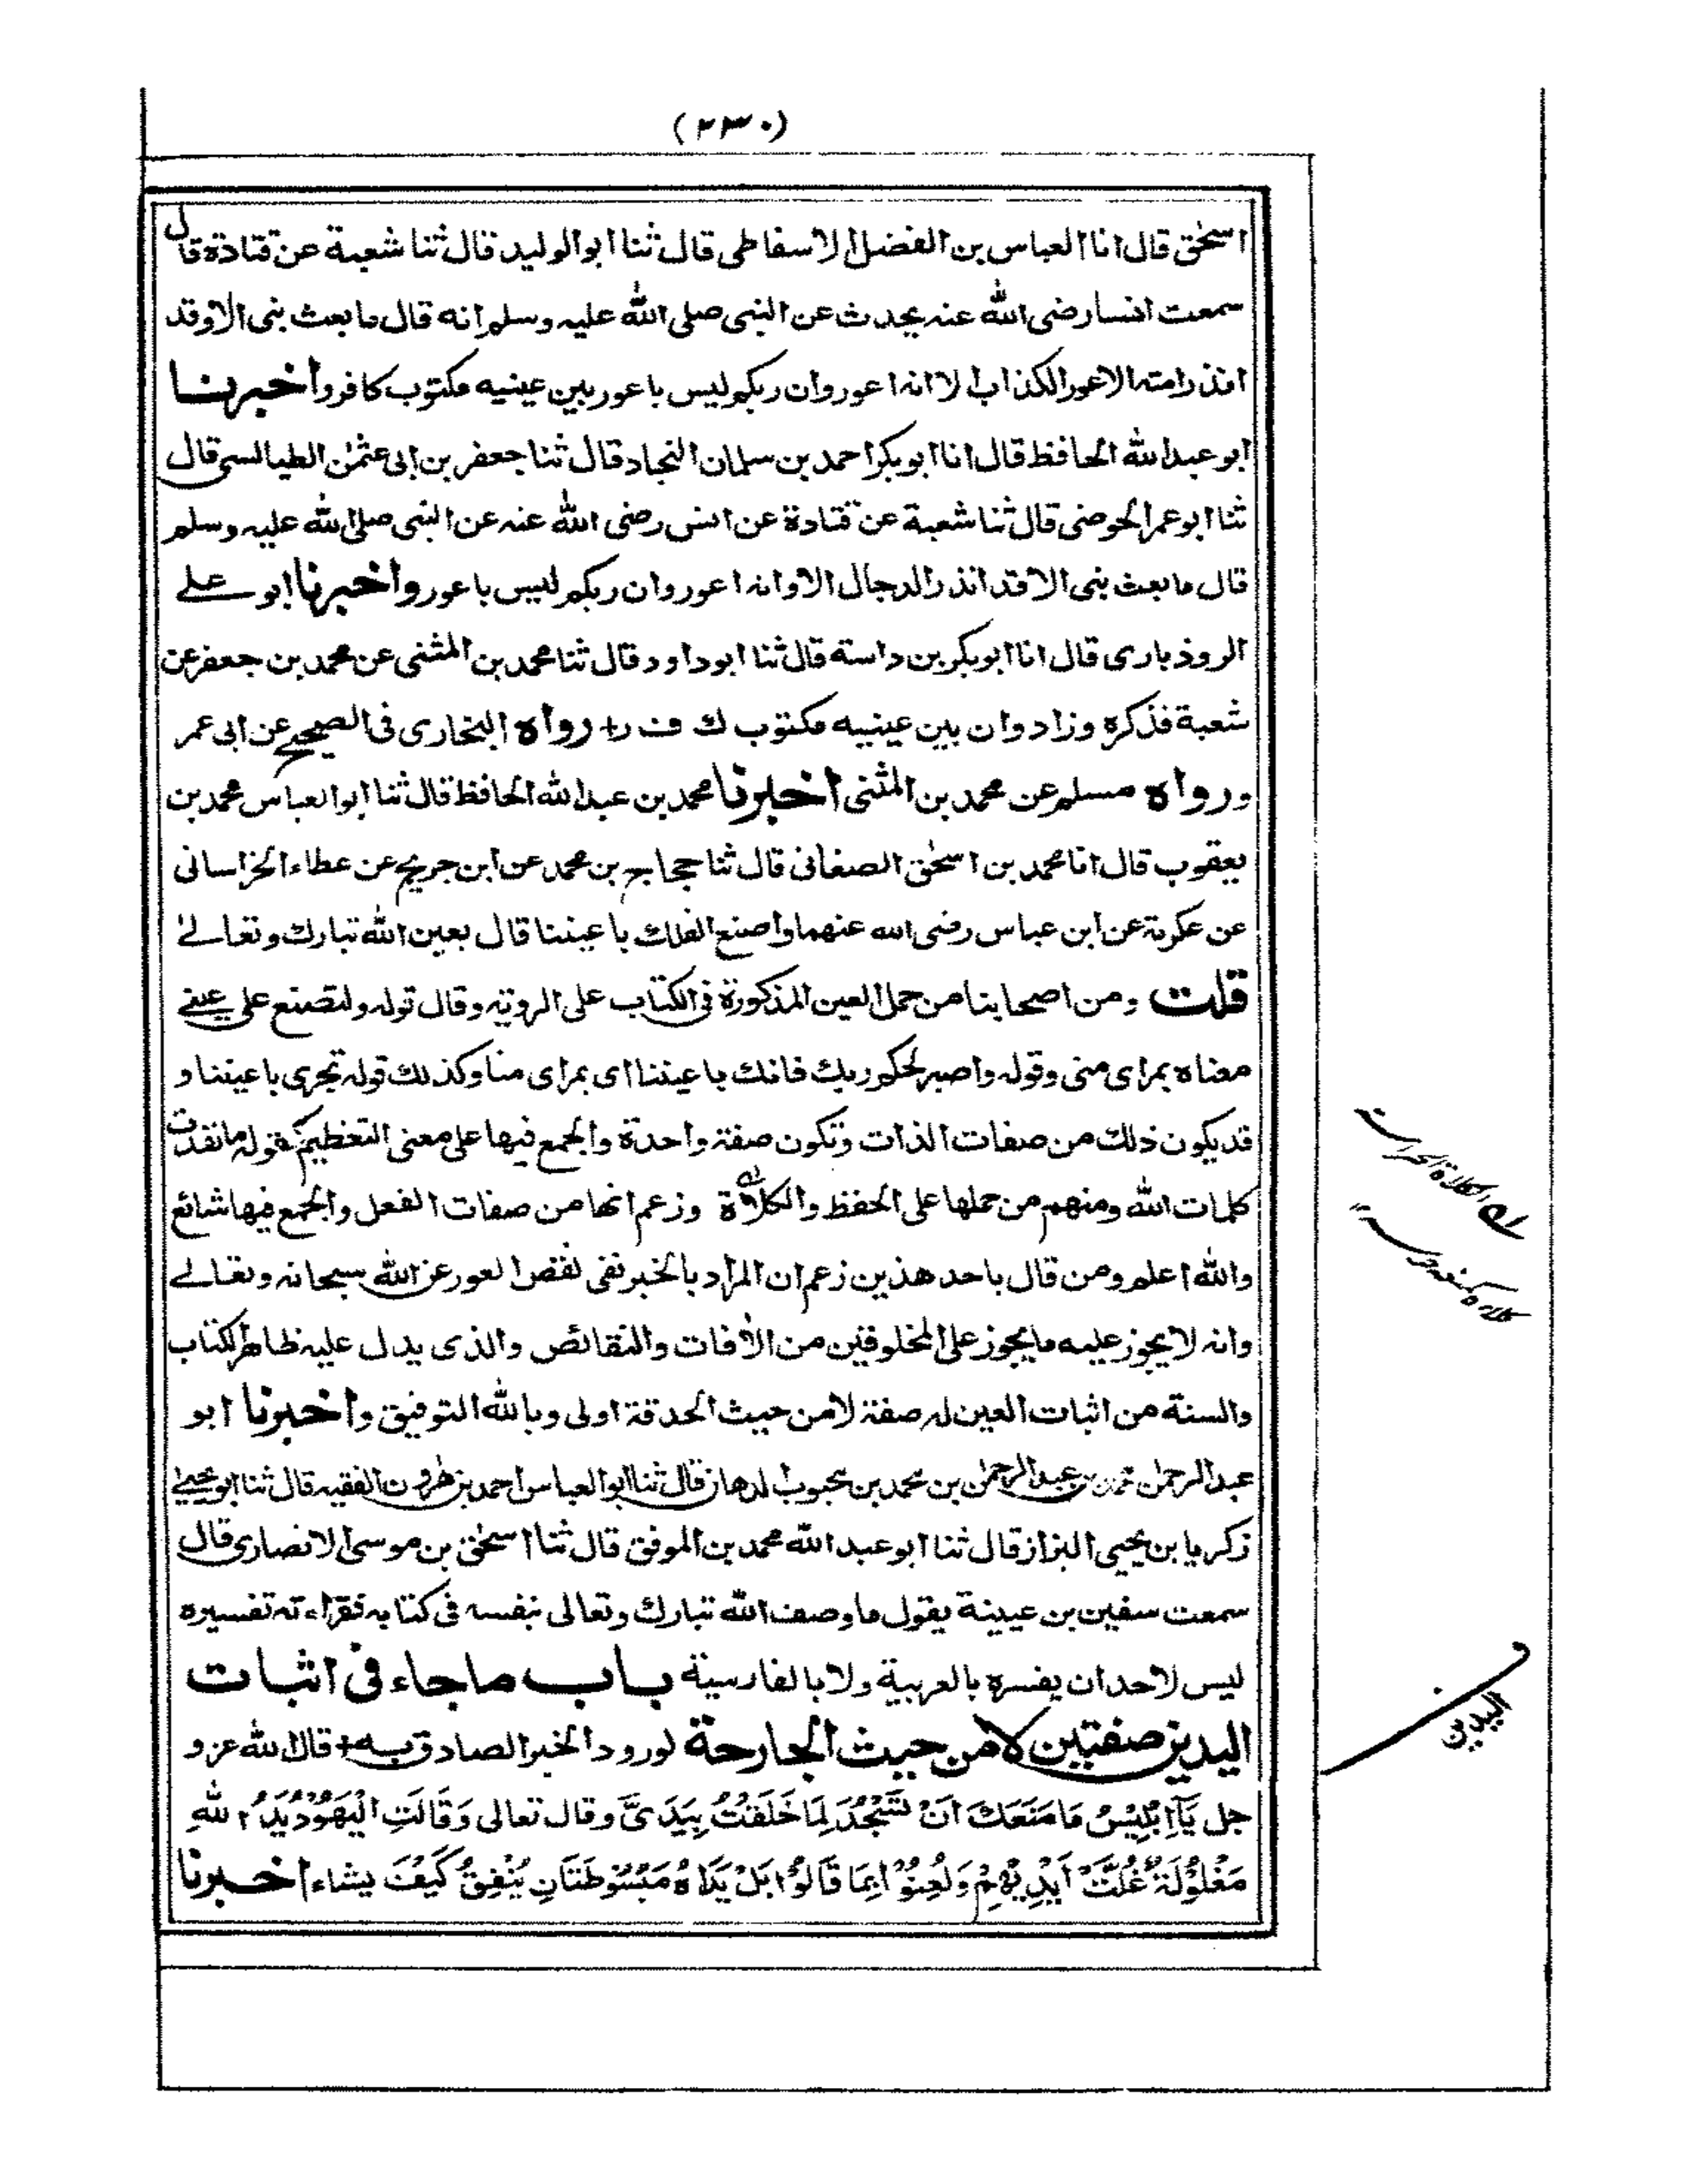 (٢٣٠)
اسحٰق قال انا العباس بن الفضل الاسفاطی قال ثنا ابو الولید قال ثنا شعبة عن قتادة قال
سمعت انسا رضی الله عنه یحدث عن النبی صلی الله علیه وسلم انه قال ما بعث نبی الا وقد
انذر امته الاعور الکذاب الا انه اعور وان ربکم لیس باعور بین عینیه مکتوب کافر واخبرنا
ابو عبد الله الحافظ قال انا ابو بکر احمد بن سلمان النجاد قال ثنا جعفر بن ابی عثمٰن الطیالسی قال
ثنا ابو عمر الحوضی قال ثنا شعبة عن قتادة عن انس رضی الله عنه عن النبی صلی الله علیه وسلم
قال ما بعث نبی الا قد انذر الدجال الا وانه اعور وان ربکم لیس باعور واخبرنا ابو علے
الروذباری قال انا ابو بکر بن داسة قال ثنا ابو داود قال ثنا محمد بن المثنی عن محمد بن جعفر عن
شعبة فذکره وزاد وان بین عینیه مکتوب ك ف ر+ رواه البخاری فی الصحیح عن ابی عمر
ورواه مسلم عن محمد بن المثنی اخبرنا محمد بن عبد الله الحافظ قال ثنا ابو العباس محمد بن
یعقوب قال انا محمد بن اسحٰق الصغانی قال ثنا حجاج بن محمد عن ابن جریج عن عطاء الخراسانی
عن عکرمة عن ابن عباس رضی الله عنهما واصنع الفلك باعیننا قال بعین الله تبارك وتعالےٰ
قلت ومن اصحابنا من حمل العین المذکورة فی الکتاب علی الرویة وقال قوله ولتصنع علی عینے
معناه بمرای منی وقوله واصبر لحکم ربك فانك باعیننا ای بمرای منا وکذلك قوله تجری باعیننا و
قد یکون ذلك من صفات الذات وتکون صفة واحدة والجمع فیها علی معنی التعظیم کقوله ما نفدت
کلمات الله ومنهم من حملها علی الحفظ والکلاءة وزعم انها من صفات الفعل والجمع فیها شائع
والله اعلم ومن قال باحد هذین زعم ان المراد بالخبر نفی نقص العور عن الله سبحانه وتعالے
وانه لا یجوز علیه ما یجوز علی المخلوقین من الاٰفات والنقائص والذی یدل علیه ظاهر الکتاب
والسنة من اثبات العین له صفة لا من حیث الحدقة اولی وبالله التوفیق واخبرنا ابو
عبد الرحمٰن محمد بن عبد الرحمٰن بن محمد بن محبوب الدهان قال ثنا ابو العباس احمد بن هرون الفقیه قال ثنا ابو یحییٰ
زکریا بن یحیی البزاز قال ثنا ابو عبد الله محمد بن الموفق قال ثنا اسحٰق بن موسی الانصاری قال
سمعت سفین بن عیینة یقول ما وصف الله تبارك وتعالی بنفسه فی کتابه فقراءته تفسیره
لیس لاحد ان یفسره بالعربیة ولا بالفارسیة باب ما جاء فی اثبات
الیدین صفتین لا من حیث الجارحة لورود الخبر الصادق به+ قال الله عز و
جل یَآ اِبْلِیْسُ مَا مَنَعَكَ اَنْ تَسْجُدَ لِمَا خَلَقْتُ بِیَدَیَّ وقال تعالی وَقَالَتِ الْیَهُوْدُ یَدُ اللهِ
مَغْلُوْلَةٌ غُلَّتْ اَیْدِیْهِمْ وَلُعِنُوْا بِمَا قَالُوْا بَلْ یَدَاهُ مَبْسُوْطَتَانِ یُنْفِقُ کَیْفَ یشاء اخبرنا
الیدین